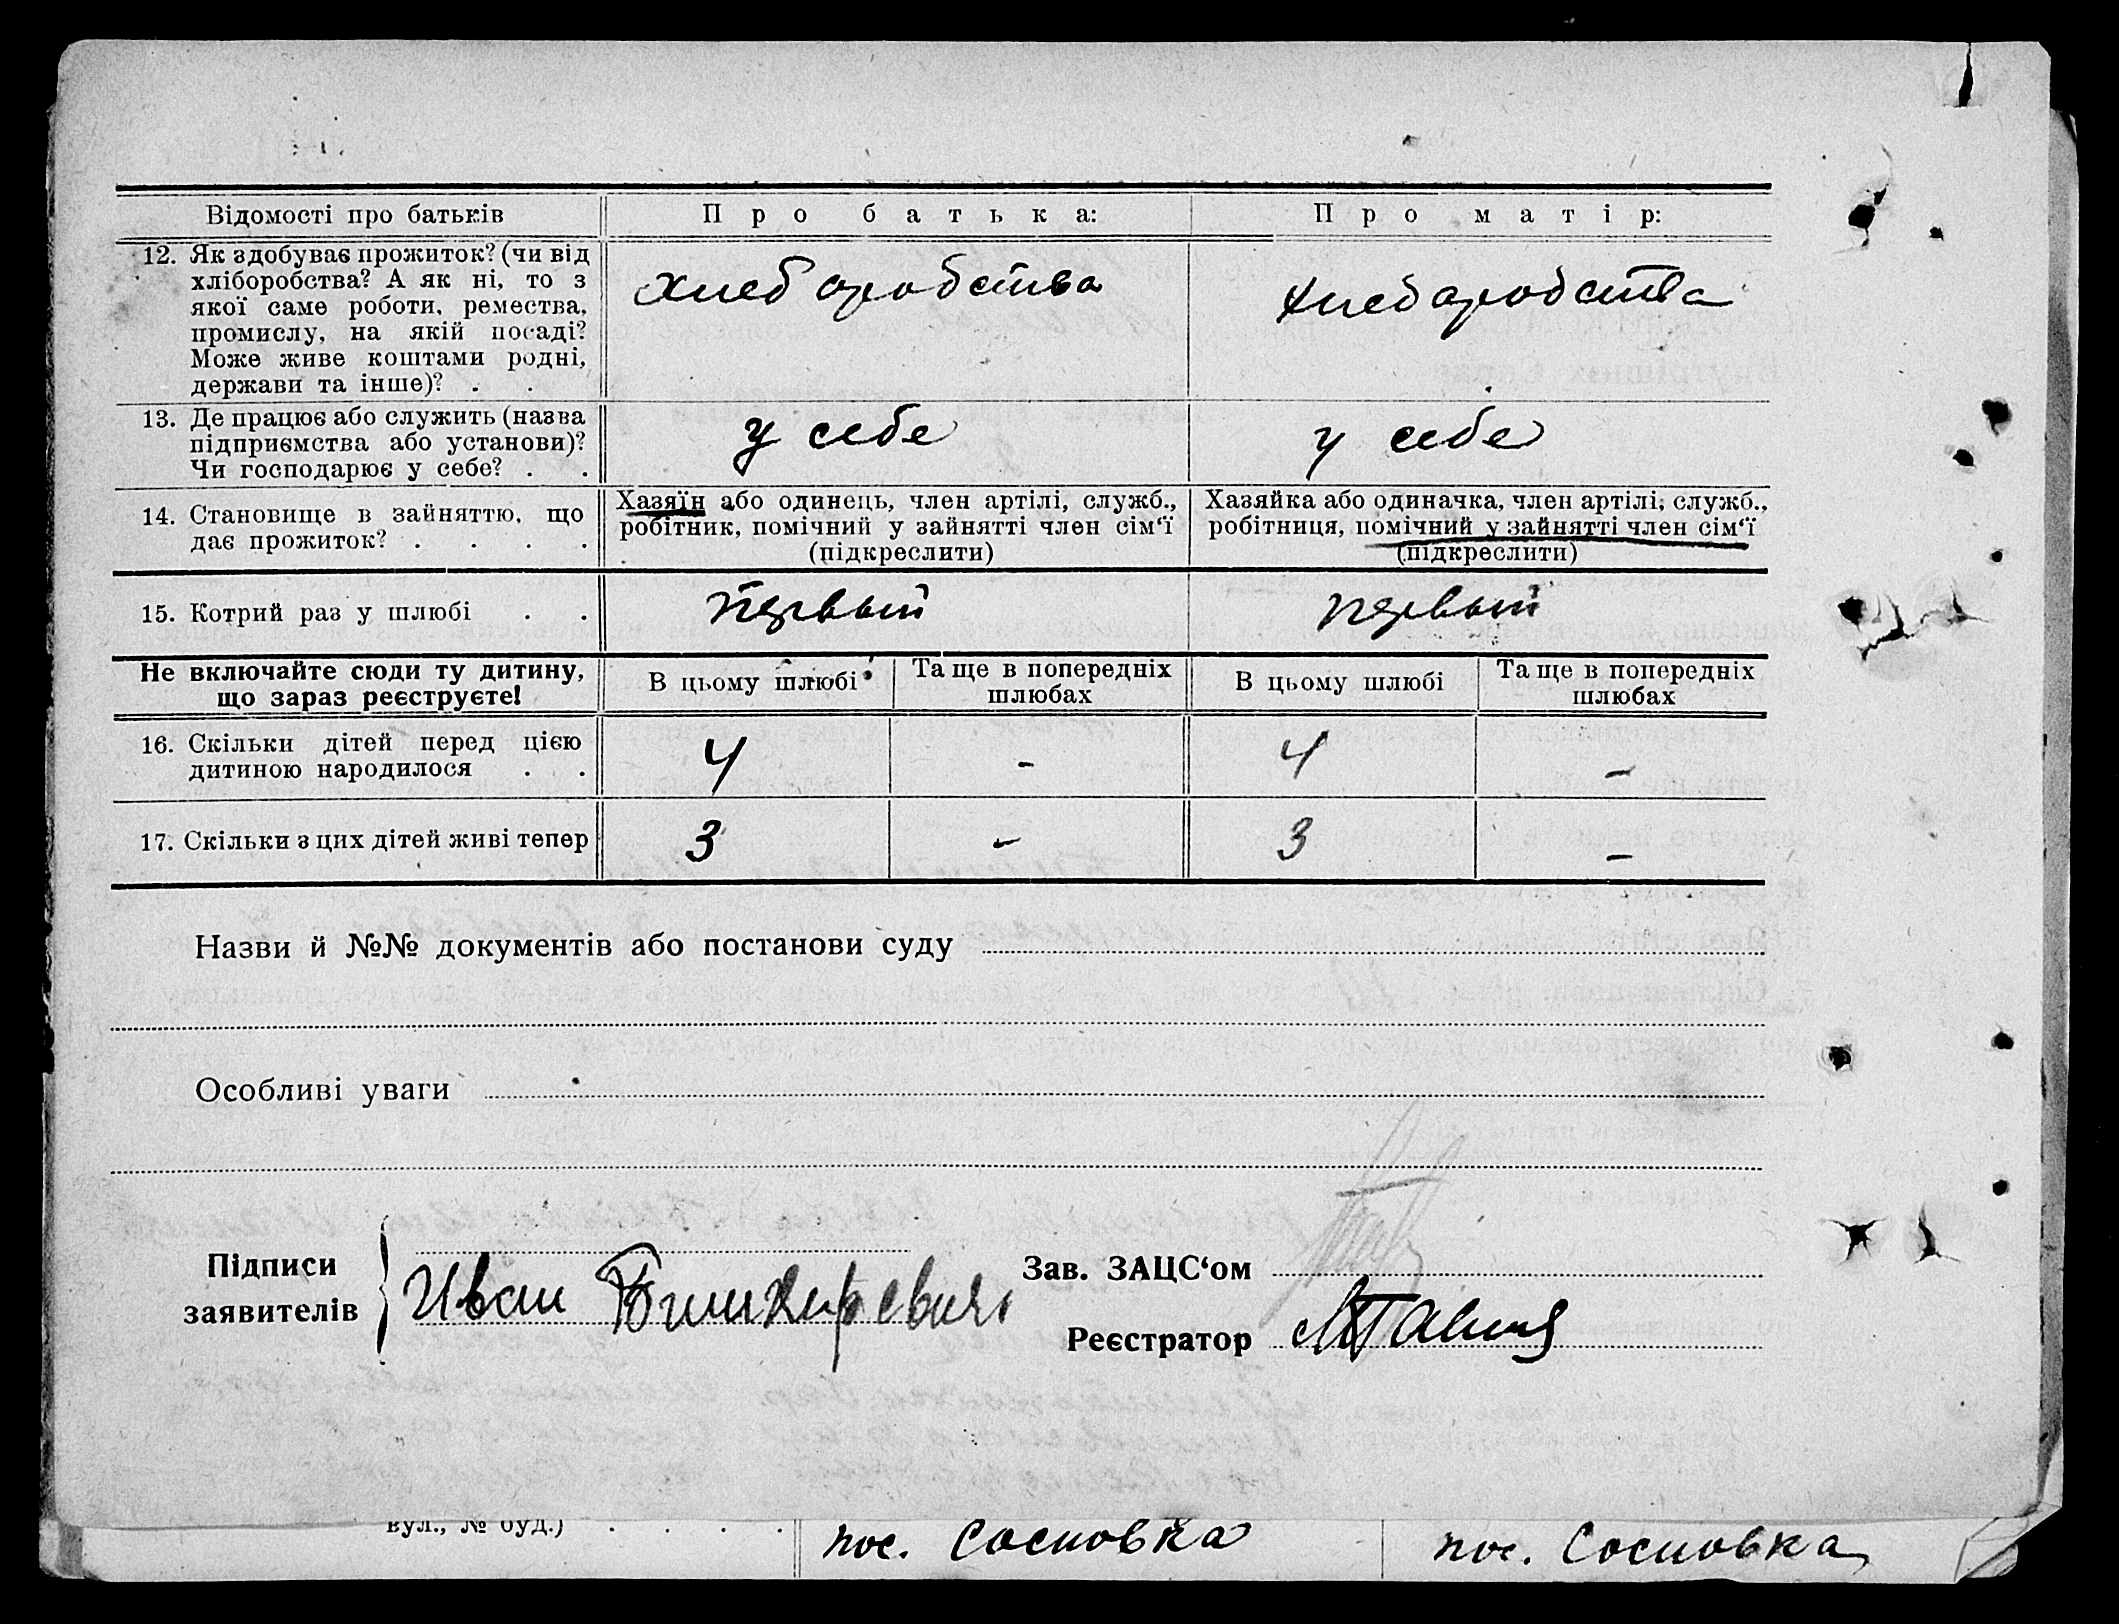 Відомості про батьків Про батька: Про матір:
12. Як здобуває прожиток? (чи від
хліборобства? А як ні, то з
якої саме роботи, ремества,
промислу, на якій посаді?
Може живе коштами родні,
держави та інше)? . .
Хлебаробства Хлебаробства
13. Де працює або служить (назва
підприємства або установи)?
Чи господарює у себе? . .
у себе у себе
14. Становище в зайняттю, що
дає прожиток? . . . .
Хазяїн або одинець, член артілі, служб.,
робітник, помічний у зайнятті член сім‘ї
(підкреслити)
Хазяйка або одиначка, член артілі, служб.,
робітниця, помічний у зайнятті член сім‘ї
(підкреслити)
15. Котрий раз у шлюбі . . первый первый
Не включайте сюди ту дитину,
що зараз реєструєте!
В цьому шлюбі
Та ще в попередніх
шлюбах
В цьому шлюбі
Та ще в попередніх
шлюбах
16. Скільки дітей перед цією
дитиною народилося . .
4 - 4 -
17. Скільки з цих дітей живі тепер 3 - 3 -
Назви й №№ документів або постанови суду
Особливі уваги
Підписи
заявителів
Иван
Зав. ЗАЦС‘ом
Реєстратор
вул., № буд.) . . . . пос. Сосновка пос. Сосновка